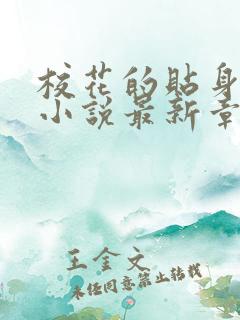 校花的貼身
小說最新章
王金文
未经同意禁止转载